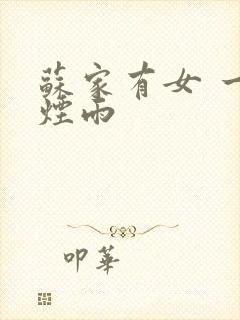 蘇家有女 一
煙雨
叩華